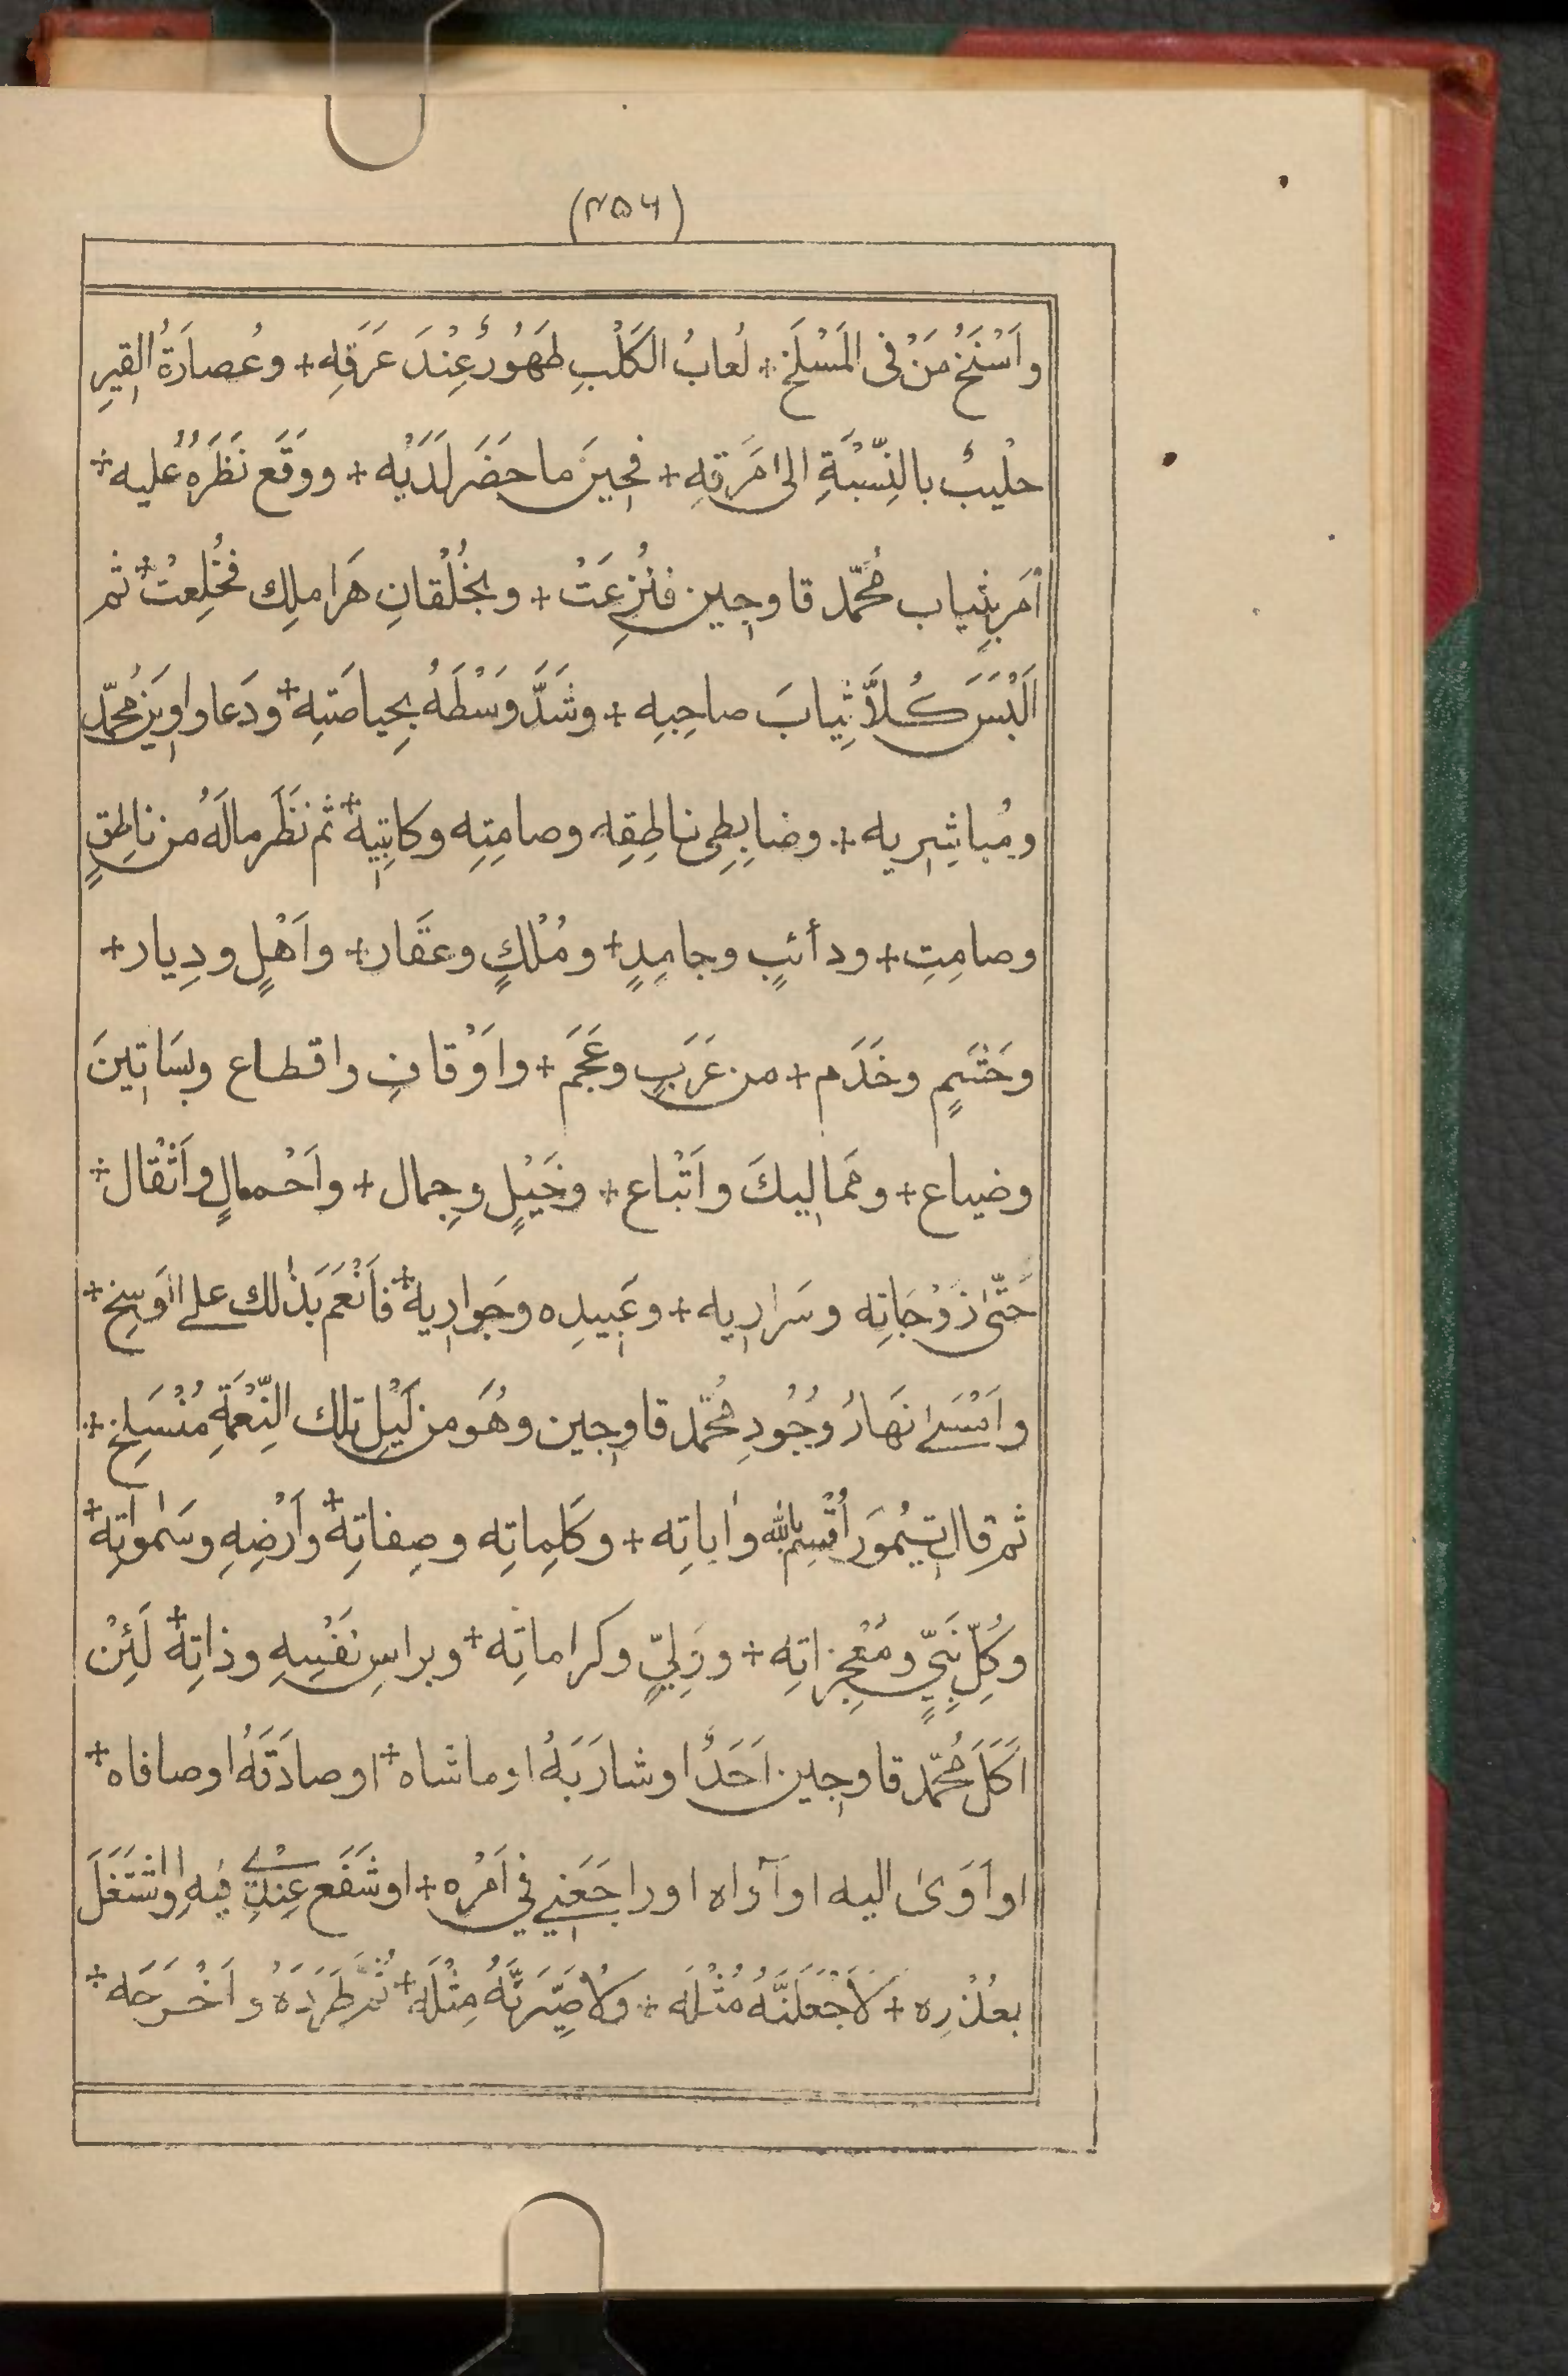 (٢٥٦)
واَسْنَخُ مَنْ فى المَسْلَخِ + لُعابُ الكَلْبِ طَهُورٌ عِنْدَ عَرَقِه + وعُصارَةُ القِيرِ
حلْيبٌ بالنِّسْبَةِ الى مَرَقِهِ + فحِينَ ما حَضَر لَدَيْه + ووقَع نَظَرُهُ عليه +
اَمَر بِثِياب مُحَمّد قاوجِين فنُزِعَتْ + وبخُلْقانِ هَرا ملِك فخُلِعتْ + ثم
اَلْبَسَ كُلاًّ ثِيابَ صاحِبِهِ + وشَدَّ وَسْطَهُ بِحِياصَتِهِ + ودَعا واوِينَ مُحمّد
ومُباشِرِيه + وضابِطِى ناطِقِه وصامِتِه وكاتِبِيهِ + ثم نَظَر مالَهُ من ناطِقٍ
وصامِتِ + ودأئبٍ وجامِدٍ + ومُلْكٍ وعقَار + واَهْلٍ ودِيار +
وحَشَمٍ وخَدَم + من عَرَبٍ وعَجَم + واَوْقافِ واقطاع وبسَاتِينَ
وضياع + ومَماليكَ واَتْباع + وخَيْلٍ وجِمال + واَحْمالٍ واَثْقال +
حَتّىٰ زَوْجَاتِه وسَرارِيه + وعَبِيدِه وجَوارِيهِ + فاَنْعَم بَذٰلك على الوَسِخ +
واَمْسَىٰ نَهَارُ وُجُودِ مُحَمّد قاوجِين وهُوَ من لَيْلِ تلك النِّعْمَةِ مُنْسَلِخ +
ثم قال تِيمُورَ اُقْسِم بالله واٰياتِه + وكَلِماتِه وصِفاتِهِ + واَرْضِهِ وسَمٰواتِهِ +
وكُلِّ نَبِيٍّ ومُعْجِزاتِه + ووَلِيٍّ وكراماتِه + وبراسِ نَفْسِهِ وذاتِهِ + لَئِنْ
اَكَلَ مُحَمّد قاوجِين اَحَدٌ اوشارَبَهُ اوماشاه + اوصادَقَهُ اوصافاه +
او اَوَىٰ اليه او آراه اوراجَعَنِي في اَمْرِه + اوشَفَع عِنْدِي فيهِ او اشْتَغَلَ
بعُذْرِه + لاَجْعَلَنَّهُ مُثْلَه + ولاُصَيِّرَنَّهُ مِثْلَهُ + ثُمّ طَرَدَهُ واَخْرَجَه +